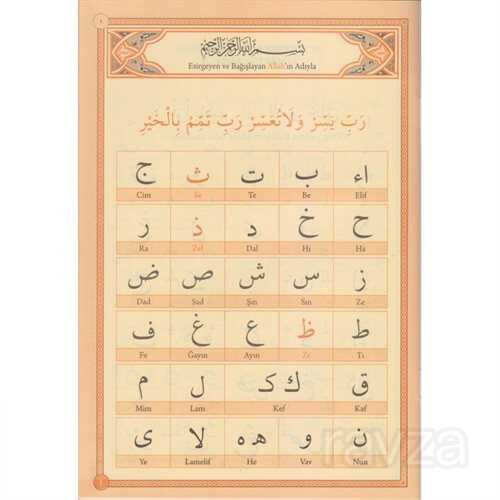 بِسْمِ اللهِ الرَّحْمٰنِ الرَّحِيمِ
Esirgeyen ve Bağışlayan Allah'ın Adıyla
رَبِّ يَسِّرْ وَلَا تُعَسِّرْ رَبِّ تَمِّمْ بِالْخَيْرِ
اء ب ت ث ج
Elif Be Te Se Cim
ح خ د ذ ر
Ha Hı Dal Zel Ra
ز س ش ص ض
Ze Sin Şın Sad Dad
ط ظ ع غ ف
Tı Zı Ayın Ğayın Fe
ق ك ک ل م
Kaf Kef Lam Mim
ن و ه ه لا ى
Nun Vav He Lamelif Ye
ravza